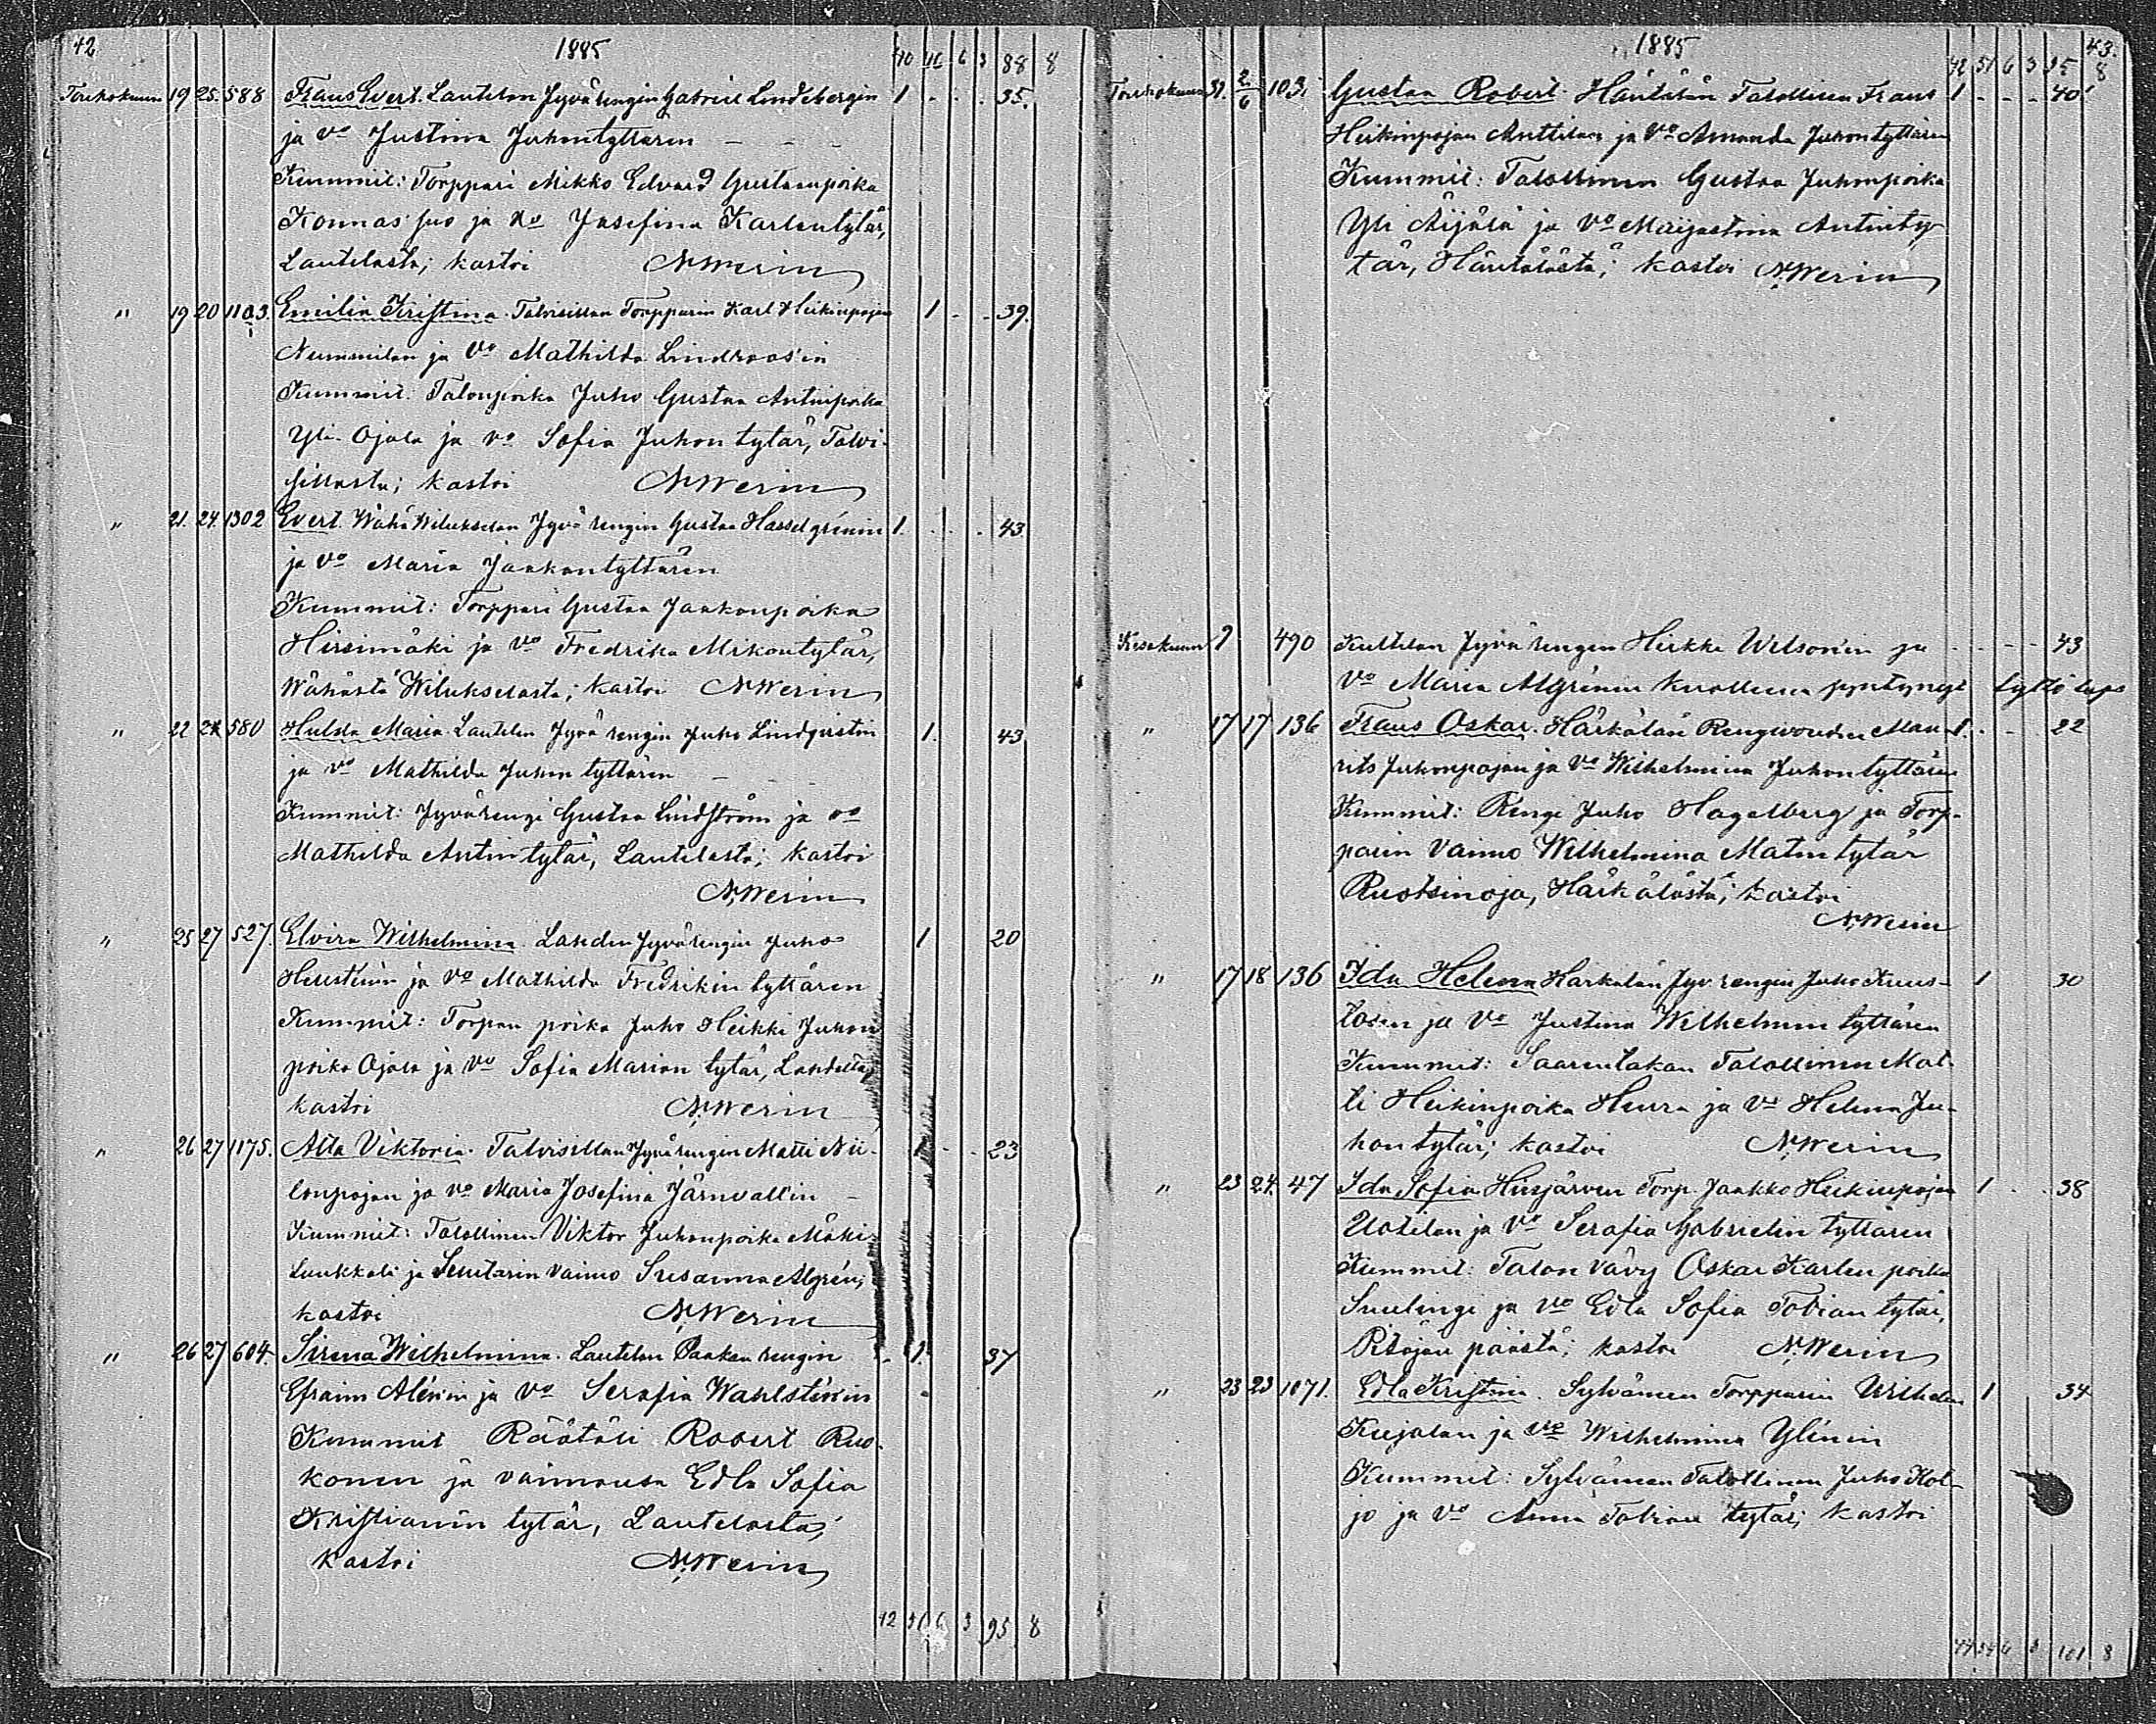 42 1885 40 46 6 3 88 8
Toukokuun 19 25. 588 Frans Evert. Lautelan Jyvä rengin Gabriel Lindebergin 1 35.
ja vo Justina Juhontyttären
Kummit: Torppari Mikko Edvard Gustaanpoika
Konnas suo ja vo Josefina Karlentytär,
Lautelasta; kastoi N. Werin
" 19 20 1103. Emilia Kristina. Talvisillan Torpparin Karl Heikinpojan 1 39.
Nummilan ja Vo Mathilda Lindroos'in
Kummit. Talonpoika Juho Gustaa Antinpoika
Yli-Ojala ja vo Sofia Juhon tytär, Talvi-
sillasta; kastoi N. Werin
" 21. 24. 1302 Evert. Wähä Wilukselan Jyvä rengin Gustaa Hasselgrénin 1. 43.
ja vo Maria Jaakontyttären
Kummit: Torppari Gustaa Jaakonpoika
Hirsimäki ja vo Fredrika Mikontytär,
Wähästä Wilukselasta; kastoi N. Werin
" 22 24 580 Hulda Maria. Lautelan Jyvä rengin Juho Lindqvistin 1. 43
ja vo Mathilda Juhon tyttären
Kummit: Jyvärengi Gustaa Lindström ja vo
Mathilda Antintytär, Lautelasta; kastoi
N. Werin
" 25 27 527. Elvira Wilhelmina. Lahden Jyvärengin Juho 1 20
ja vo Mathilda Fredrikin tyttären
Kummit: Torpan poika Juho Heikki Juhon
poika Ojala ja vo Sofia Marian tytär, Lahdelta;
kastoi N. Werin
" 26 27 1175. Alta Viktoria. Talvisillan Jyvärengin Matti Nii- 1 23
lonpojan ja vo Maria Josefina Järnvall'in
Kummit: Talollinen Viktor Juhonpoika Mäki-
Luukkali ja Suutarin vaimo Susanna Algrén;
kastoi N. Werin
" 26 27 604. Sirena Wilhelmina. Lautelan Paakan rengin 1. 37
Efraim Alén'in ja vo Serafia Wahlstén'in
Kummit Räätäli Robert Ruo-
konen ja vaimonsa Edla Sofia
Kristianin tytär, Lautelasta;
kastoi N. Werin
42 51 6 3 95 8
1885 43.
42 51 6 3 95 8
Toukokuun 31. 2/6 103. Gustaa Robert. Häntälän Talollisen Frans 1 40.
Heikinpojan Anttilan ja vo Amanda Juhontyttären
Kummit: Talollinen Gustaa Juhonpoika
Yli Äijälä ja vo Maijastina Antinty-
tär, Häntälästä; kastoi N. Werin
Kesäkuun 9 490 Kultelan Jyvä rengin Heikki Wilson'in ja 43
vo Maria Algrénin kuolleena syntynyt tyttö laps
" 17 17 136 Frans Oskar. Härkälän Rengivoudin Mau- 1. 22
rits Juhonpojan ja vo Wilhelmina Juhon tyttären
Kummit: Rengi Juho Hagelberg ja Torp-
parin vaimo Wilhelmina Matintytär
Ruotsinoja, Härkälästä; kastoi
N. Werin
" 17 18 136 Ida Helena Härkälän Jyv rengin Juho Kuus- 1 30
tosen ja vo Justina Wilhelmin tyttären
Kummit: Saarentakan Talollinen Mat-
ti Heikinpoika Heura ja vo Helena Ju-
hontytär; kastoi N. Werin
" 23 24. 47 Ida Sofia Hirsjärven Torp. Jaakko Heikinpojan 1 38
Uotilan ja vo Serafia Gabrielin tyttären
Kummit: Talon vävy Oskar Karlen poika
Suulinge ja vo Edla Sofia Tobian tytär,
Pitäjän päästä; kastoi N. Werin
" 23 23 1071. Edla Kristina. Sylvänen Torpparin Wilhelm 1 34
Kujalan ja vo Wilhelmina Ylénin
Kummit: Sylvänen Talollinen Juho Kol-
jo ja vo Anna Tobian tytär; kastoi
44 54 6 3 101 8